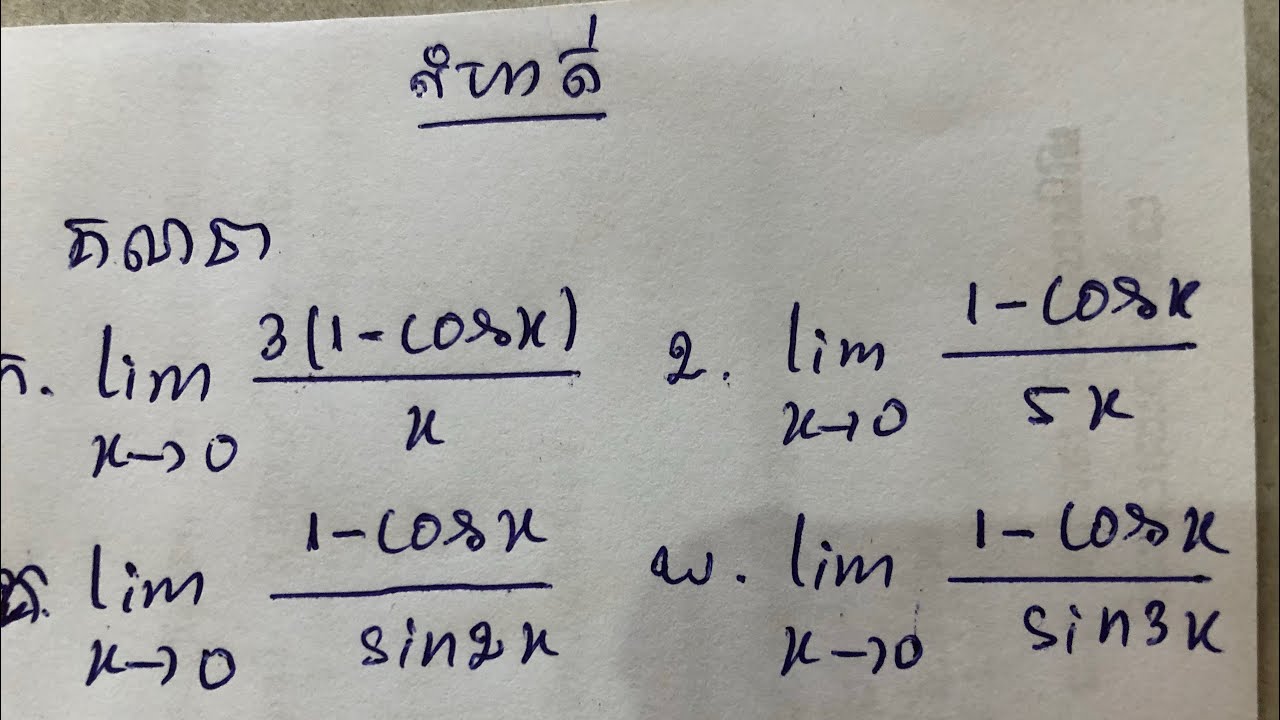 លំហាត់
គណនា
ក. lim x→0 3(1-cosx)/x
ខ. lim x→0 1-cosx/5x
គ. lim x→0 1-cosx/sin2x
ឃ. lim x→0 1-cosx/sin3x